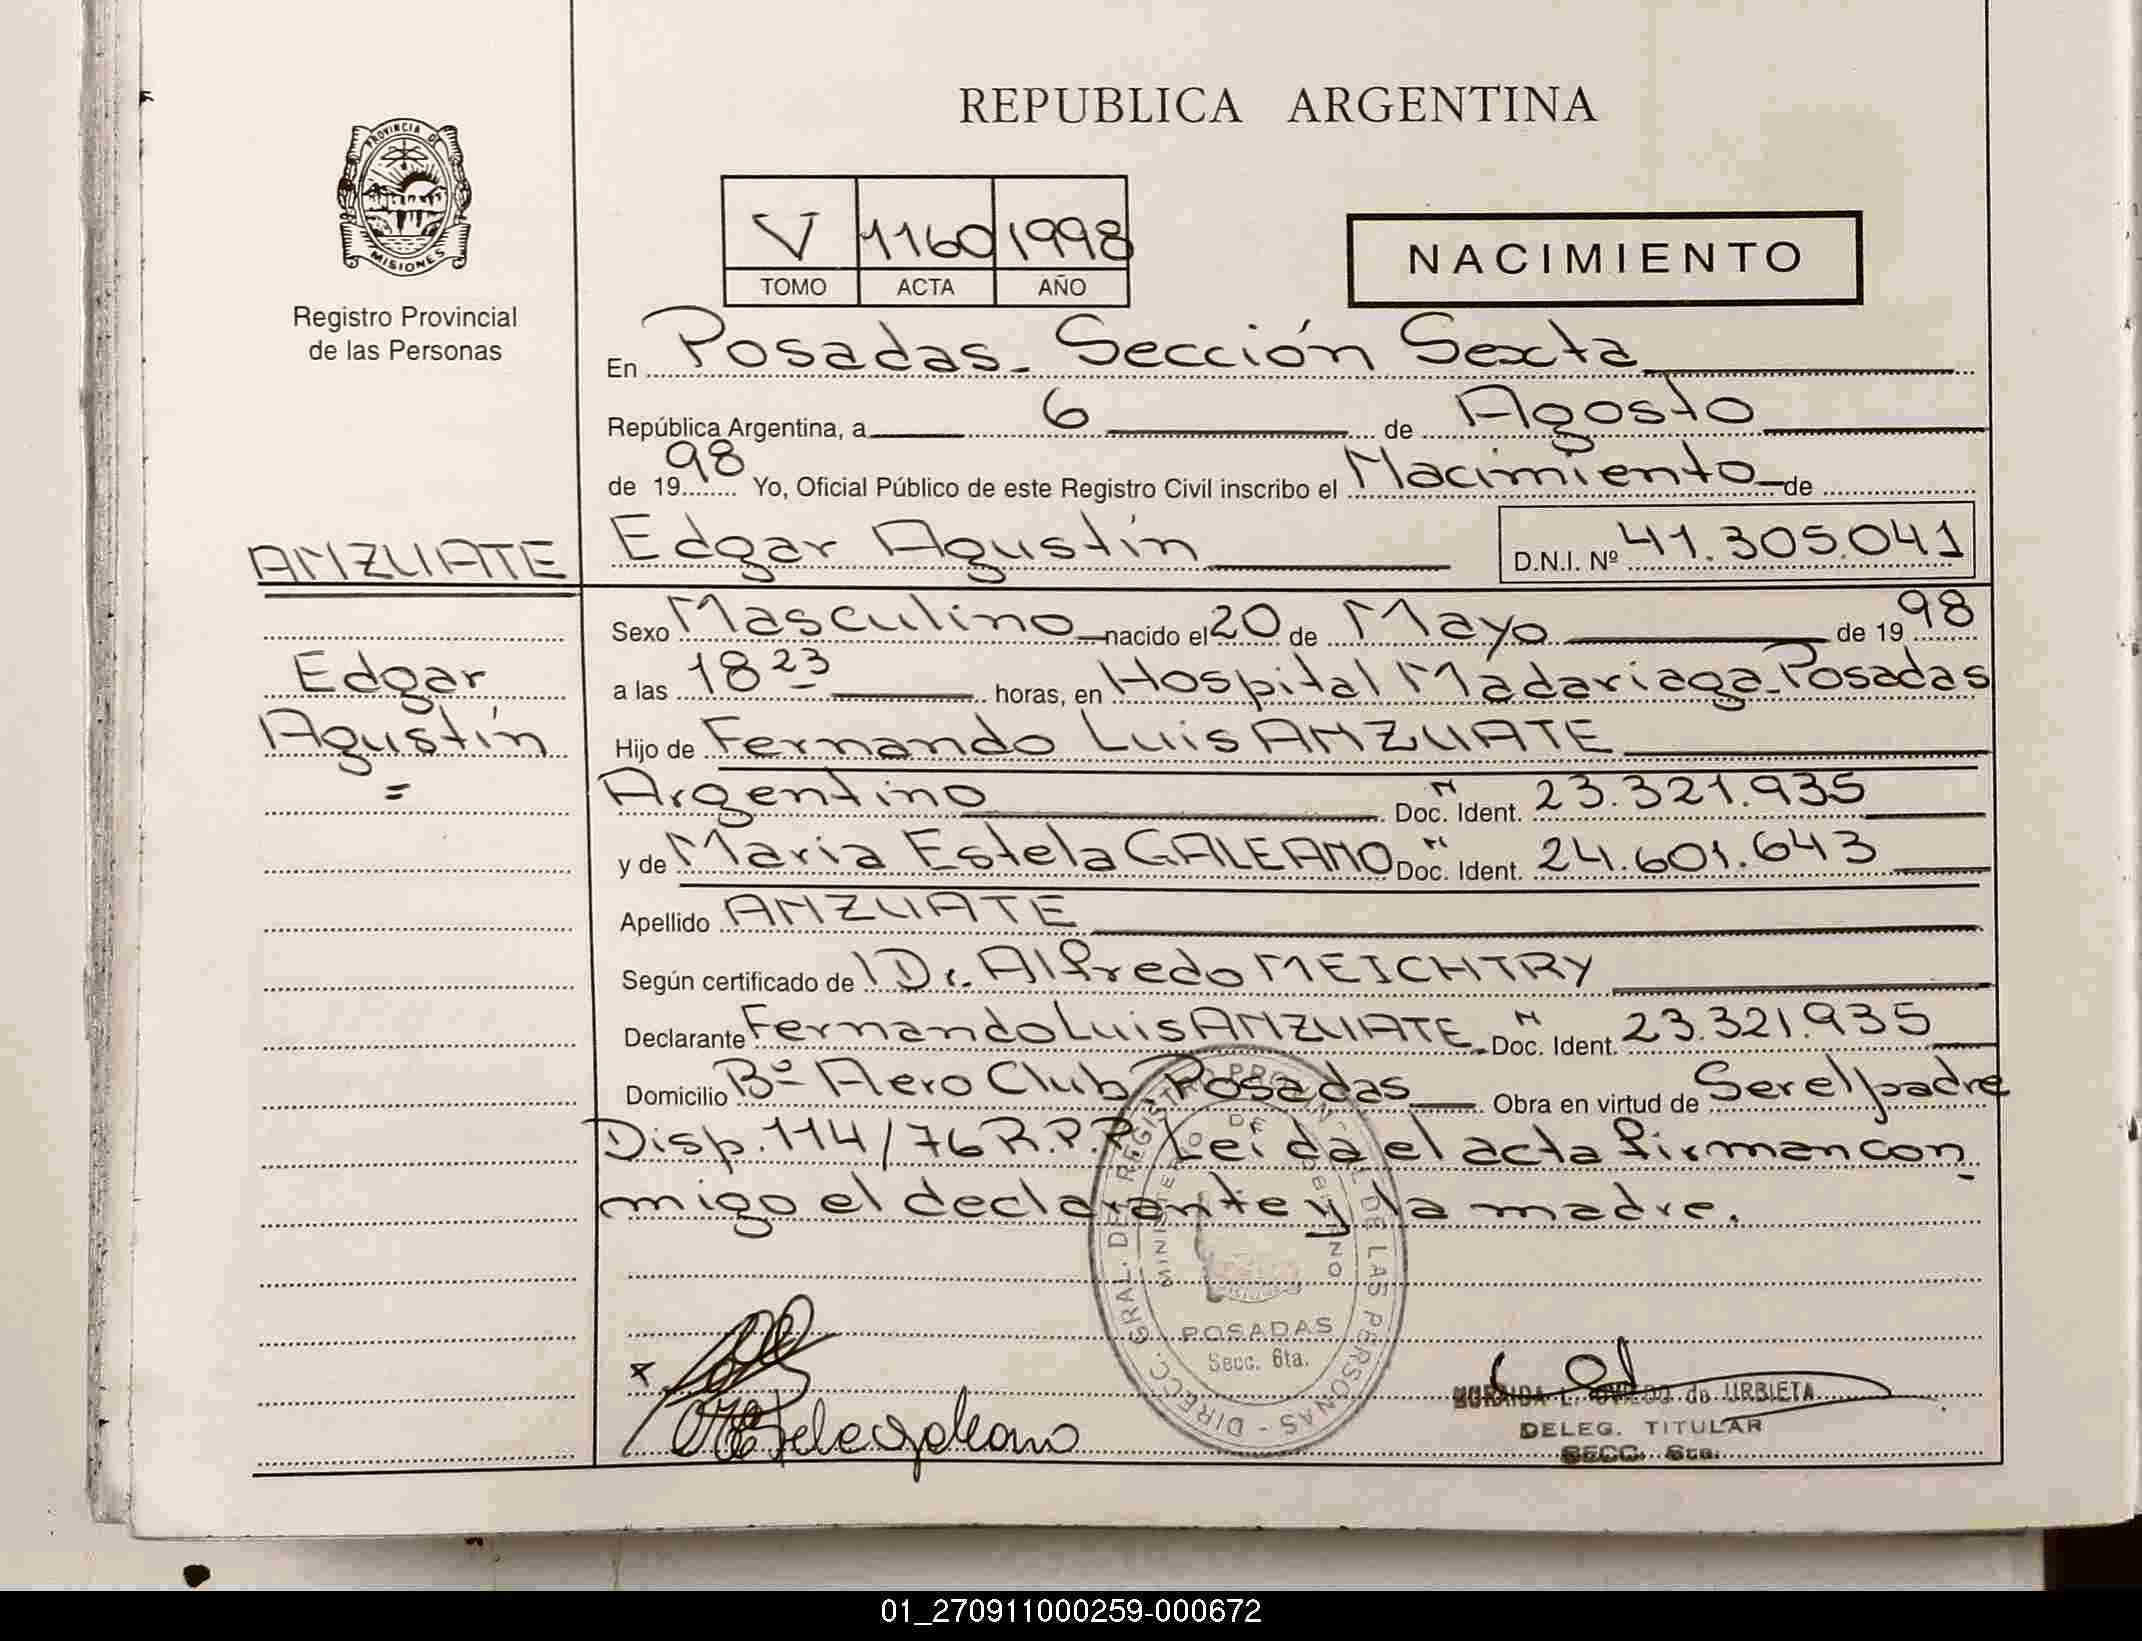 REPUBLICA ARGENTINA
PROVINCIA DE MISIONES
Registro Provincial
de las Personas
V 1160 1998
TOMO ACTA AÑO
NACIMIENTO
En Posadas - Sección Sexta
República Argentina, a 6 de Agosto
de 1998 Yo, Oficial Público de este Registro Civil inscribo el Nacimiento de
Edgar Agustín D.N.I. Nº 41.305.041
ANZUATE
Edgar
Agustín
=
Sexo Masculino nacido el 20 de Mayo de 1998
a las 18 23 horas, en Hospital Madariaga - Posadas
Hijo de Fernando Luis ANZUATE
Argentino Doc. Ident. N 23.321.935
y de Maria Estela GALEANO Doc. Ident. N 24.601.643
Apellido ANZUATE
Según certificado de Dr. Alfredo MEICHTRY
Declarante Fernando Luis ANZUATE Doc. Ident. N 23.321.935
Domicilio Bº Aero Club, Posadas Obra en virtud de Ser el padre
Disp. 114/76 R.P.P. Leída el acta firman con
migo el declarante y la madre.
DIRECC. GRAL. DEL REGISTRO PROVIN. DE LAS PERSONAS
MINISTERIO DE GOBIERNO
POSADAS
Secc. 6ta.
Estela galeano
OVIEDO de URBIETA
DELEG. TITULAR
SECC. 6ta.
01_270911000259-000672